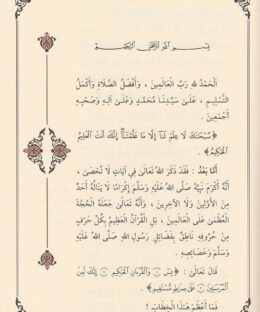 بِسْمِ اللهِ الرَّحْمٰنِ الرَّحِيْمِ
الْحَمْدُ للهِ رَبِّ الْعَالَمِينَ ، وَأَفْضَلُ الصَّلَاةِ وَأَكْمَلُ
التَّسْلِيمِ ، عَلَىٰ سَيِّدِنَا مُحَمَّدٍ وَعَلَىٰ آلِهِ وَصَحْبِهِ
أَجْمَعِينَ .
﴿سُبْحَٰنَكَ لَا عِلْمَ لَنَآ إِلَّا مَا عَلَّمْتَنَآ إِنَّكَ أَنتَ الْعَلِيمُ
الْحَكِيمُ﴾ .
أَمَّا بَعْدُ : فَقَدْ ذَكَرَ اللهُ تَعَالَىٰ فِي آيَاتٍ لَا تُحْصَىٰ ،
أَنَّهُ أَكْرَمَ نَبِيَّهُ صَلَّى اللهُ عَلَيْهِ وَسَلَّمَ إِكْرَامًا لَا يَنَالُهُ أَحَدٌ
مِنَ الْأَوَّلِينَ وَلَا الْآخِرِينَ ، وَأَنَّهُ تَعَالَىٰ جَعَلَهُ الْحُجَّةَ
الْعُظْمَىٰ عَلَى الْعَالَمِينَ ، بَلِ الْقُرْآنُ الْعَظِيمُ بِكُلِّ حَرْفٍ
مِنْ حُرُوفِهِ نَاطِقٌ بِفَضَائِلِ رَسُولِ اللهِ صَلَّى اللهُ عَلَيْهِ
وَسَلَّمَ وَخَصَائِصِهِ .
قَالَ تَعَالَىٰ : ﴿يسٓ ۝ وَالْقُرْءَانِ الْحَكِيمِ ۝ إِنَّكَ لَمِنَ
الْمُرْسَلِينَ ۝ عَلَىٰ صِرَٰطٍ مُّسْتَقِيمٍ﴾ .
فَمَا أَعْظَمَ هَذَا الْخِطَابَ !